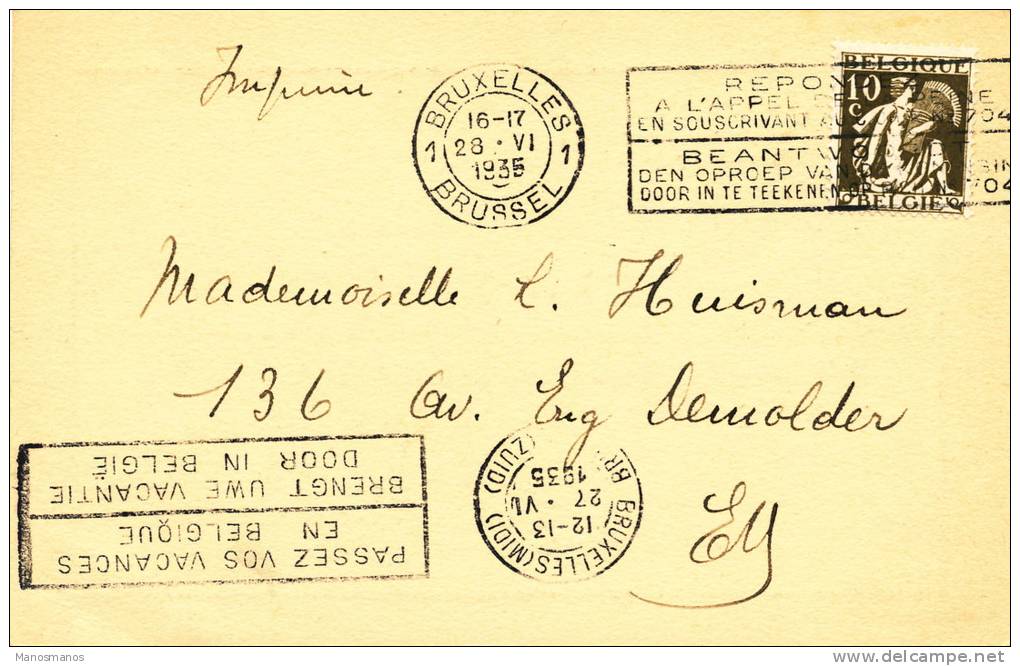 Imprimé
BRUXELLES
1 16-17 1
28 · VI
1935
BRUSSEL
BELGIQUE
10 c
BELGIË
REPON
A L'APPEL
EN SOUSCRIVANT AU 704
BEANTW
DEN OPROEP VAN
DOOR IN TE TEEKENEN OP 704
Mademoiselle L. Huisman
136 Av. Eug Demolder
E/V
BRUXELLES (MIDI)
12-13
27 · VI
1935
(ZUID)
PASSEZ VOS VACANCES
EN BELGIQUE
BRENGT UWE VACANTIE
DOOR IN BELGIË
Manosmanos
delcampe.net